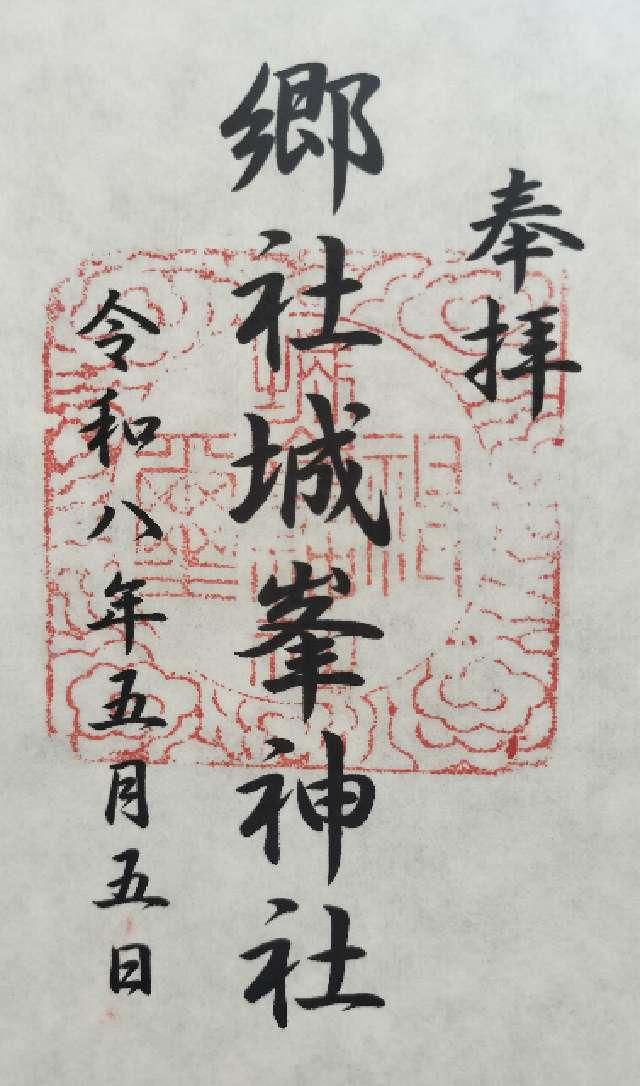 奉拝
郷社城峯神社
令和八年五月五日